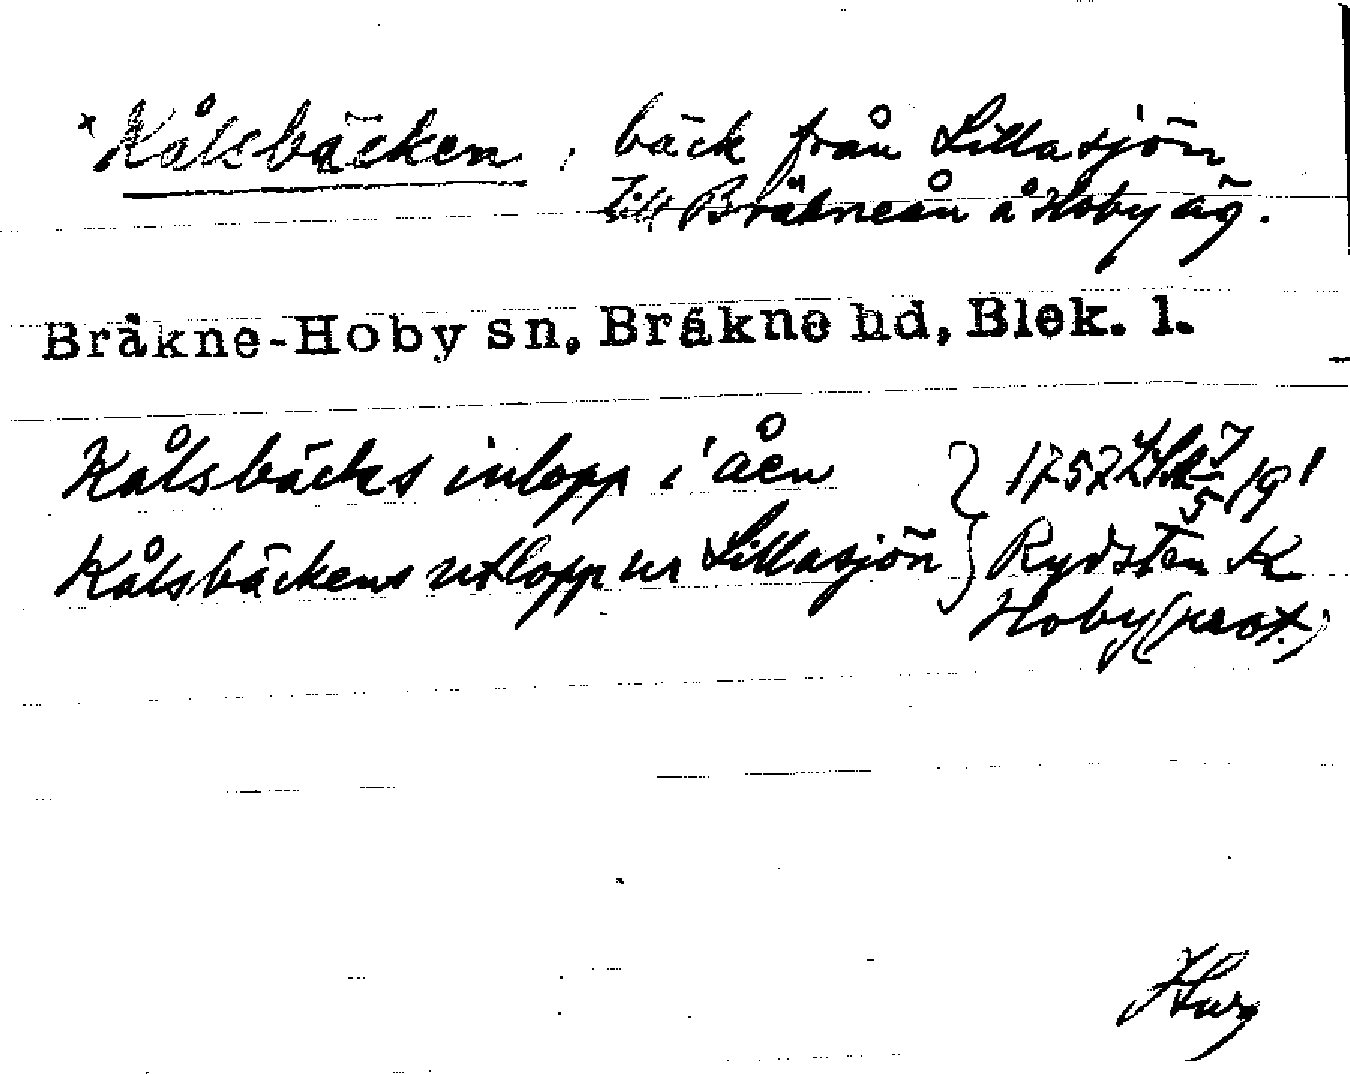 *Kålsbäcken, bäck från Lillasjön
till Bräkneån å Hoby äg.
Bräkne-Hoby sn, Bräkne hd, Blek. l.
Kålsbäcks inlopp i åen } 1757 7/5
Kålsbäckens utlopp ur Lillasjön } Rydsten K
Hoby (prot.)